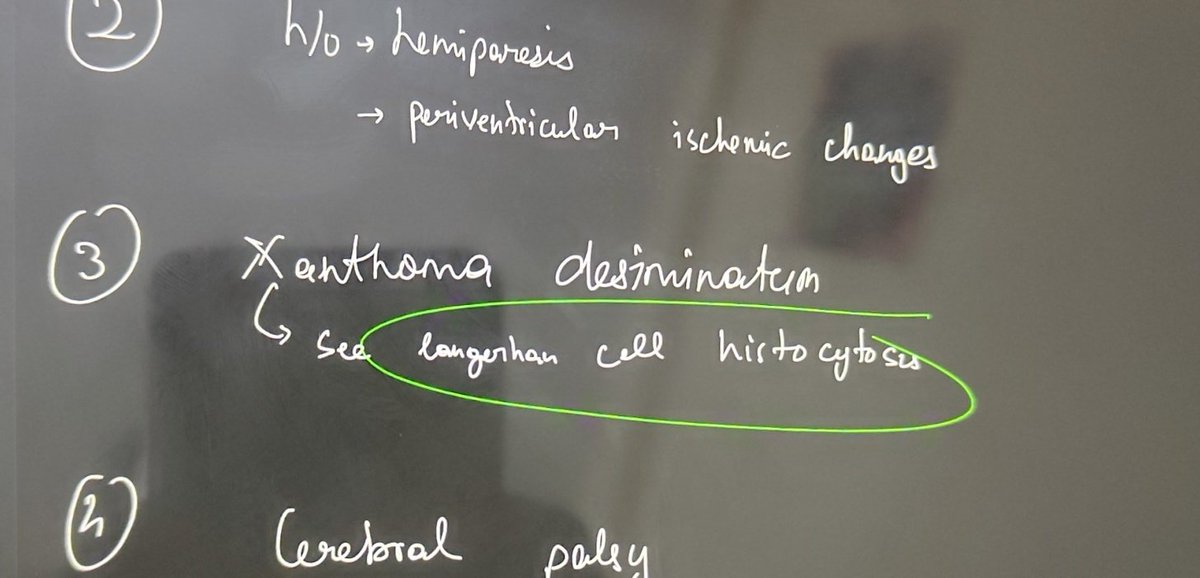 2
h/o → hemiparesis
→ periventricular ischemic changes
3
Xanthoma desiminatum
↳ See langerhan cell histocytosis
4
Cerebral palsy